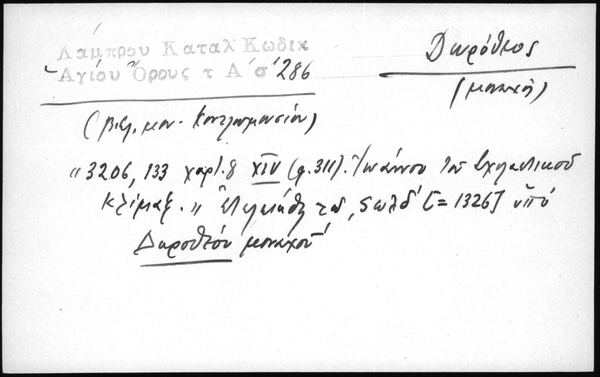 Λάμπρου Καταλ Κωδικ
Ἁγίου Ὄρους τ Α΄ σ΄ 286
Δωρόθεος
(μοναχός)
(βιβλ. μον. Κουτλουμουσίου)
"3206, 133 χαρτ. 8 XIV (φ. 311). Ἰωάννου τοῦ Σχολαστικοῦ
Κλίμαξ. " Ἐτελειώθη τῷ , ςωλδ΄ [= 1326] ὑπό
Δωροθέου μοναχοῦ